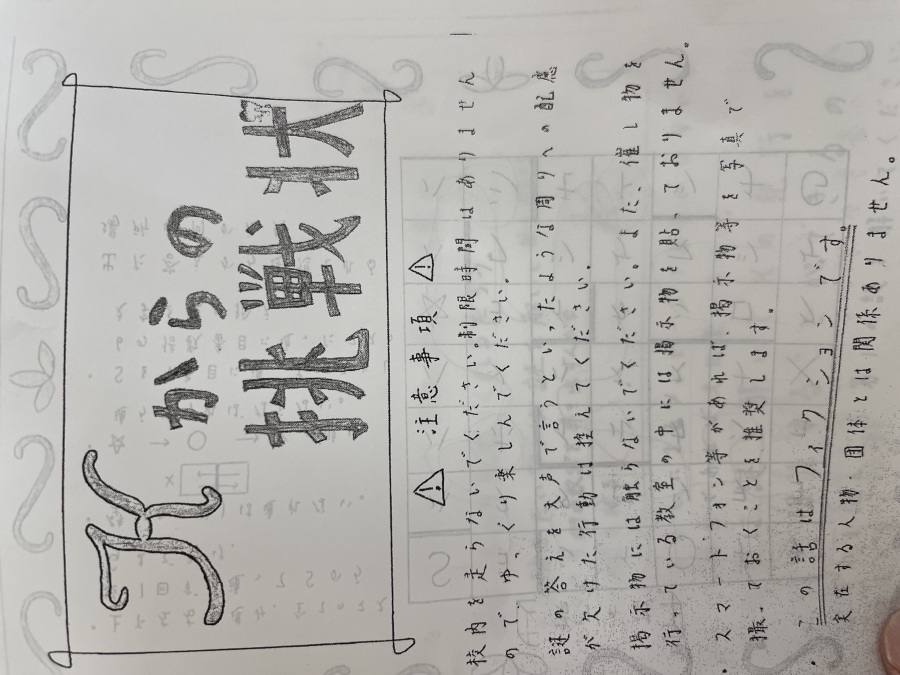 Xからの
挑戦状
⚠ 注意事項 ⚠
校内を走らないでください。制限時間はありません
のでゆっくり楽しんでください。
謎の答えを大声で言うといったような周りへの配慮
が欠けた行動は控えてください。
掲示物には触らないでください。また、催し物を
行っている教室の中には掲示物を貼っておりません。
・スマートフォン等があれば、掲示物等を写真で
撮っておくことを推奨します。
・この話はフィクションです。
実在する人物、団体とは関係ありません。